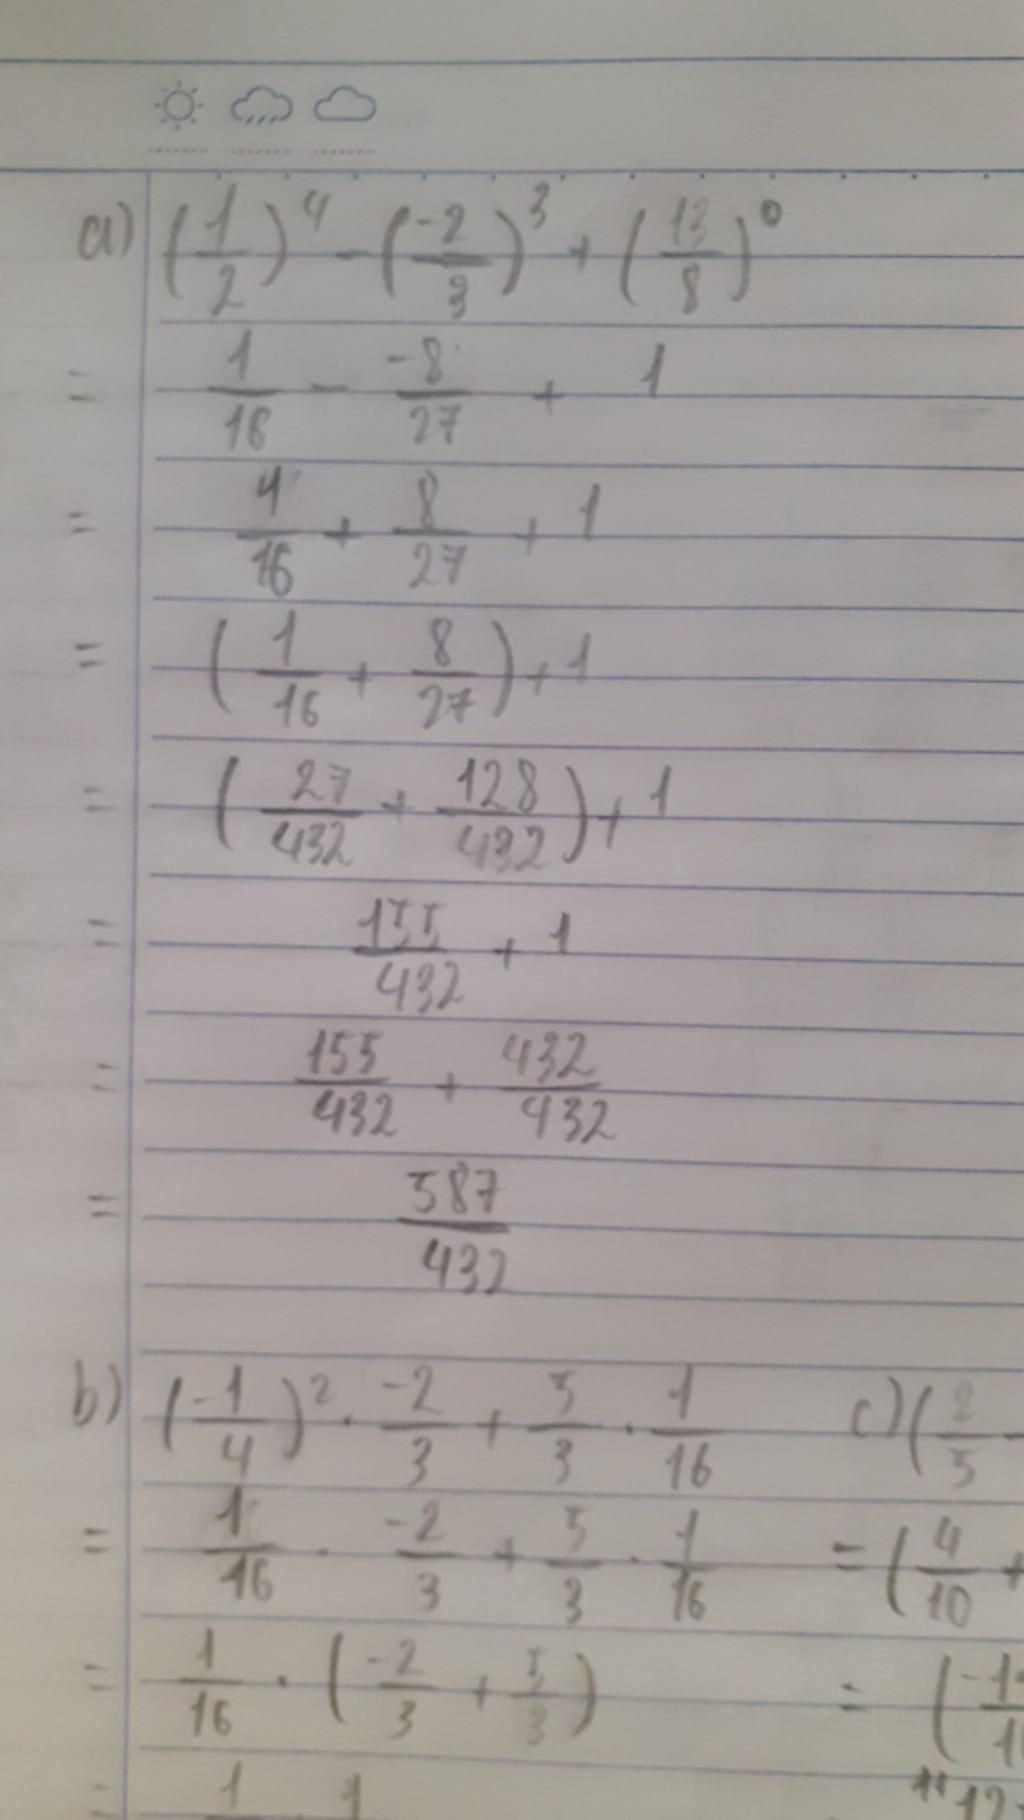 a) (1/2)^4 - (-2/3)^3 + (13/8)^0
= 1/16 - -8/27 + 1
= 1/16 + 8/27 + 1
= (1/16 + 8/27) + 1
= (27/432 + 128/432) + 1
= 155/432 + 1
= 155/432 + 432/432
= 587/432
b) (-1/4)^2 . -2/3 + 5/3 . 1/16
= 1/16 . -2/3 + 5/3 . 1/16
= 1/16 . (-2/3 + 5/3)
= 1 1
c) (2/5 -
= (4/10 +
= (